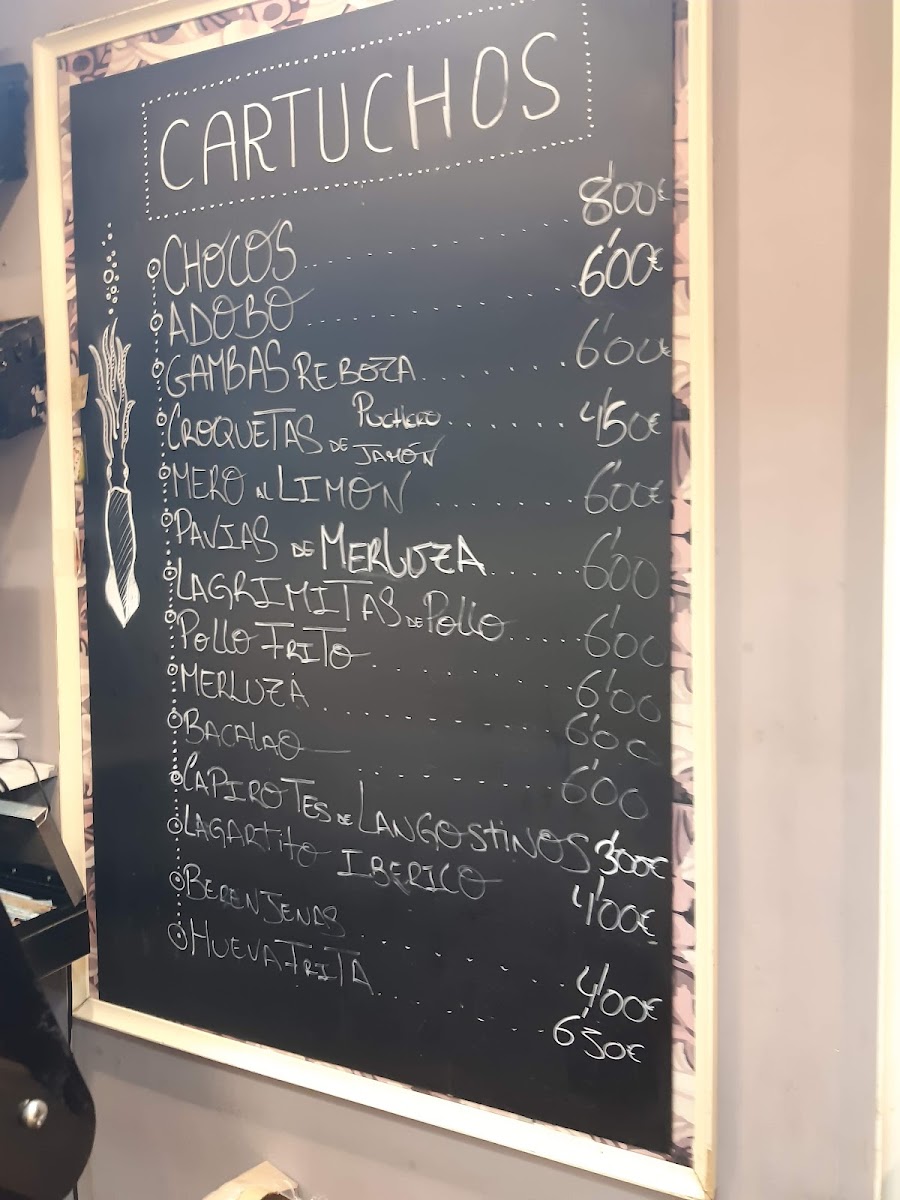 CARTUCHOS
CHOCOS 8'00€
ADOBO 6'00€
GAMBAS REBOZA 6'00€
CROQUETAS DE PUCHERO JAMÓN 4'50€
MERO AL LIMÓN 6'00€
PAVIAS DE MERLUZA 6'00
LAGRIMITAS DE POLLO 6'00
POLLO FRITO 6'00
MERLUZA 6'00
BACALAO 6'00
CAPIROTES DE LANGOSTINOS 3'00€
LAGARTITO IBERICO 4'00€
BERENJENAS 4'00€
HUEVA FRITA 6'30€